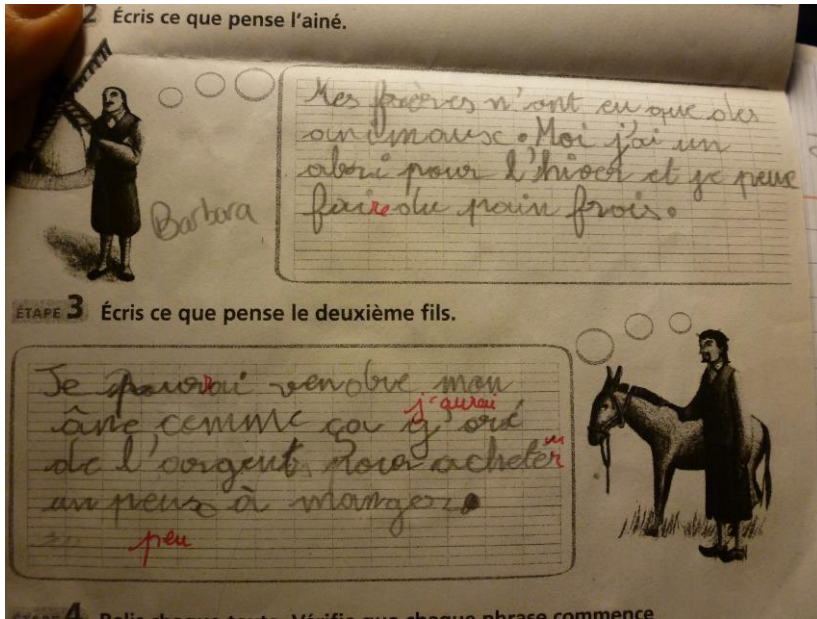 2 Écris ce que pense l'ainé.
Mes frères n'ont eu que des
animaux. Moi j'ai un
abri pour l'hiver et je peux
faire du pain frais.
Barbara
ÉTAPE 3 Écris ce que pense le deuxième fils.
Je pourrai vendre mon
j'aurai
âne comme ça g'oré
de l'argent pour acheter
un peux à manger.
peu
4 Relis chaque texte. Vérifie que chaque phrase commence